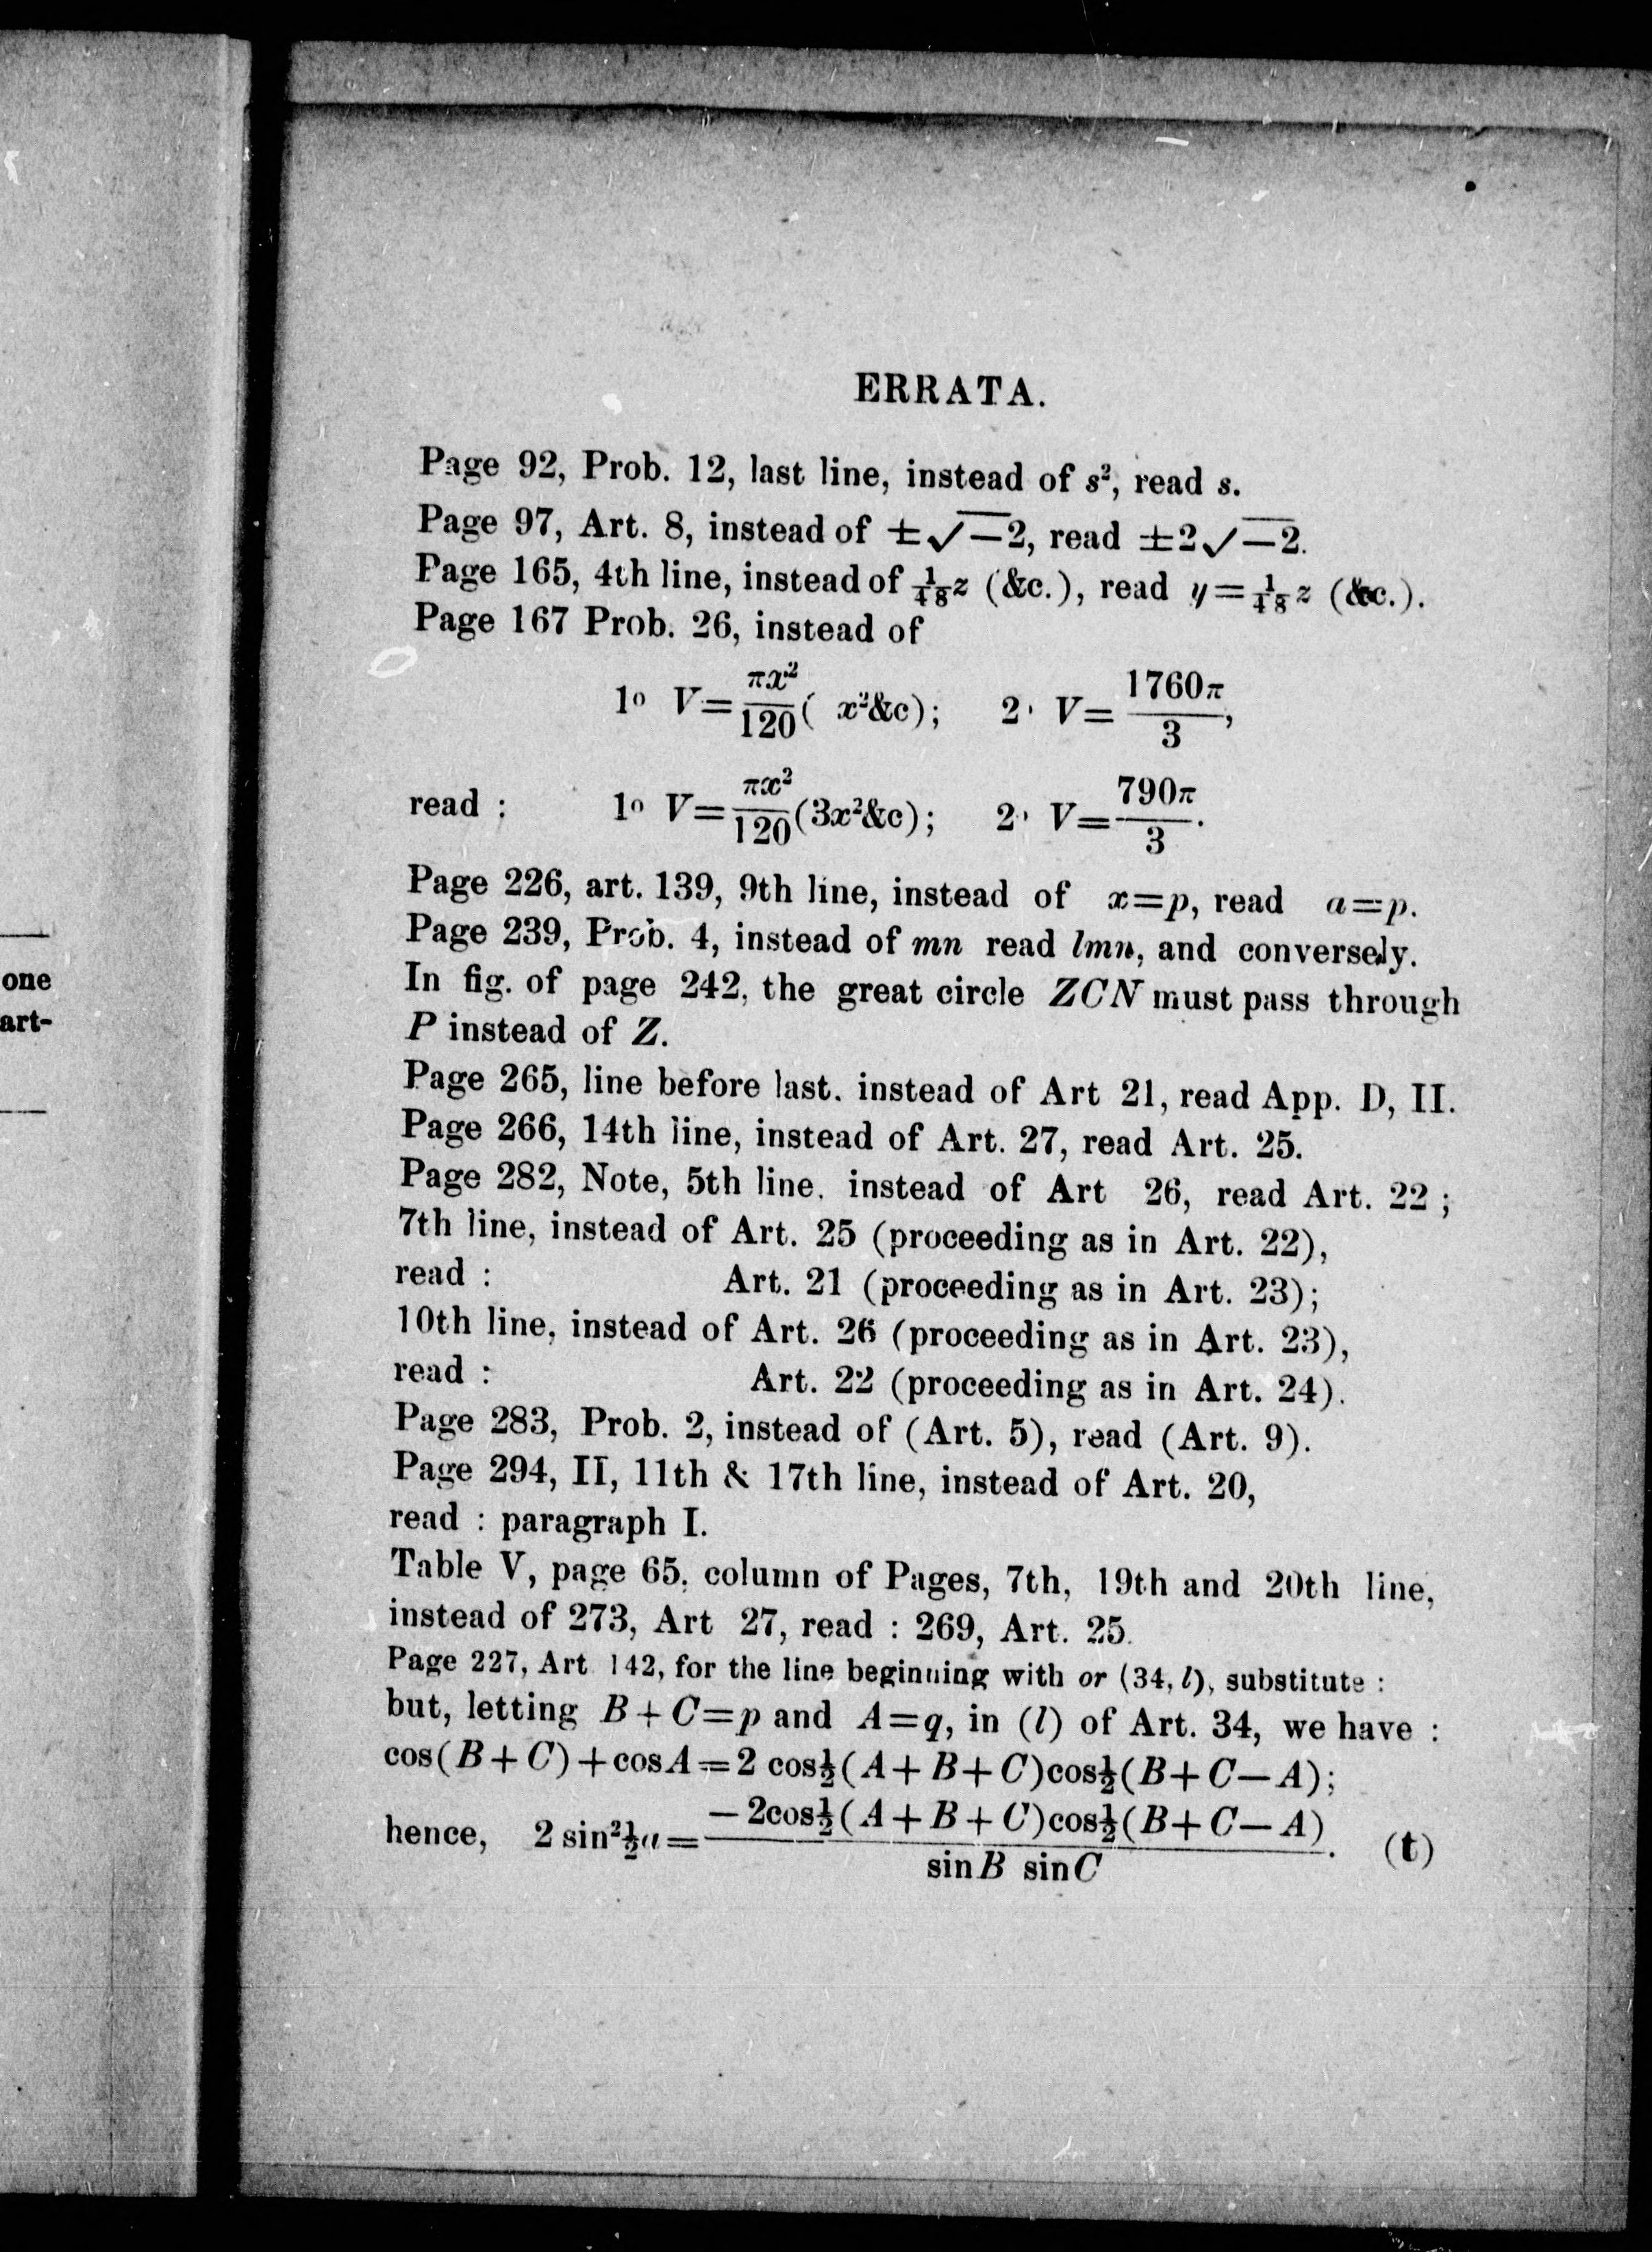 one
art-
ERRATA.
Page 92, Prob. 12, last line, instead of s², read s.
Page 97, Art. 8, instead of ±√—2, read ±2√—2.
Page 165, 4th line, instead of 1/48 z (&c.), read y=1/48 z (&c.).
Page 167 Prob. 26, instead of
1º V=πx²/120( x²&c); 2· V=1760π/3,
read : 1º V=πx²/120(3x²&c); 2· V=790π/3.
Page 226, art. 139, 9th line, instead of x=p, read a=p.
Page 239, Prob. 4, instead of mn read lmn, and conversely.
In fig. of page 242, the great circle ZCN must pass through
P instead of Z.
Page 265, line before last. instead of Art 21, read App. D, II.
Page 266, 14th line, instead of Art. 27, read Art. 25.
Page 282, Note, 5th line. instead of Art 26, read Art. 22 ;
7th line, instead of Art. 25 (proceeding as in Art. 22),
read : Art. 21 (proceeding as in Art. 23);
10th line, instead of Art. 26 (proceeding as in Art. 23),
read : Art. 22 (proceeding as in Art. 24).
Page 283, Prob. 2, instead of (Art. 5), read (Art. 9).
Page 294, II, 11th & 17th line, instead of Art. 20,
read : paragraph I.
Table V, page 65, column of Pages, 7th, 19th and 20th line,
instead of 273, Art 27, read : 269, Art. 25.
Page 227, Art 142, for the line beginning with or (34, l), substitute :
but, letting B+C=p and A=q, in (l) of Art. 34, we have :
cos(B+C)+cosA=2 cos½(A+B+C)cos½(B+C—A);
hence, 2 sin²½a=—2cos½(A+B+C)cos½(B+C—A)/sinB sinC. (t)